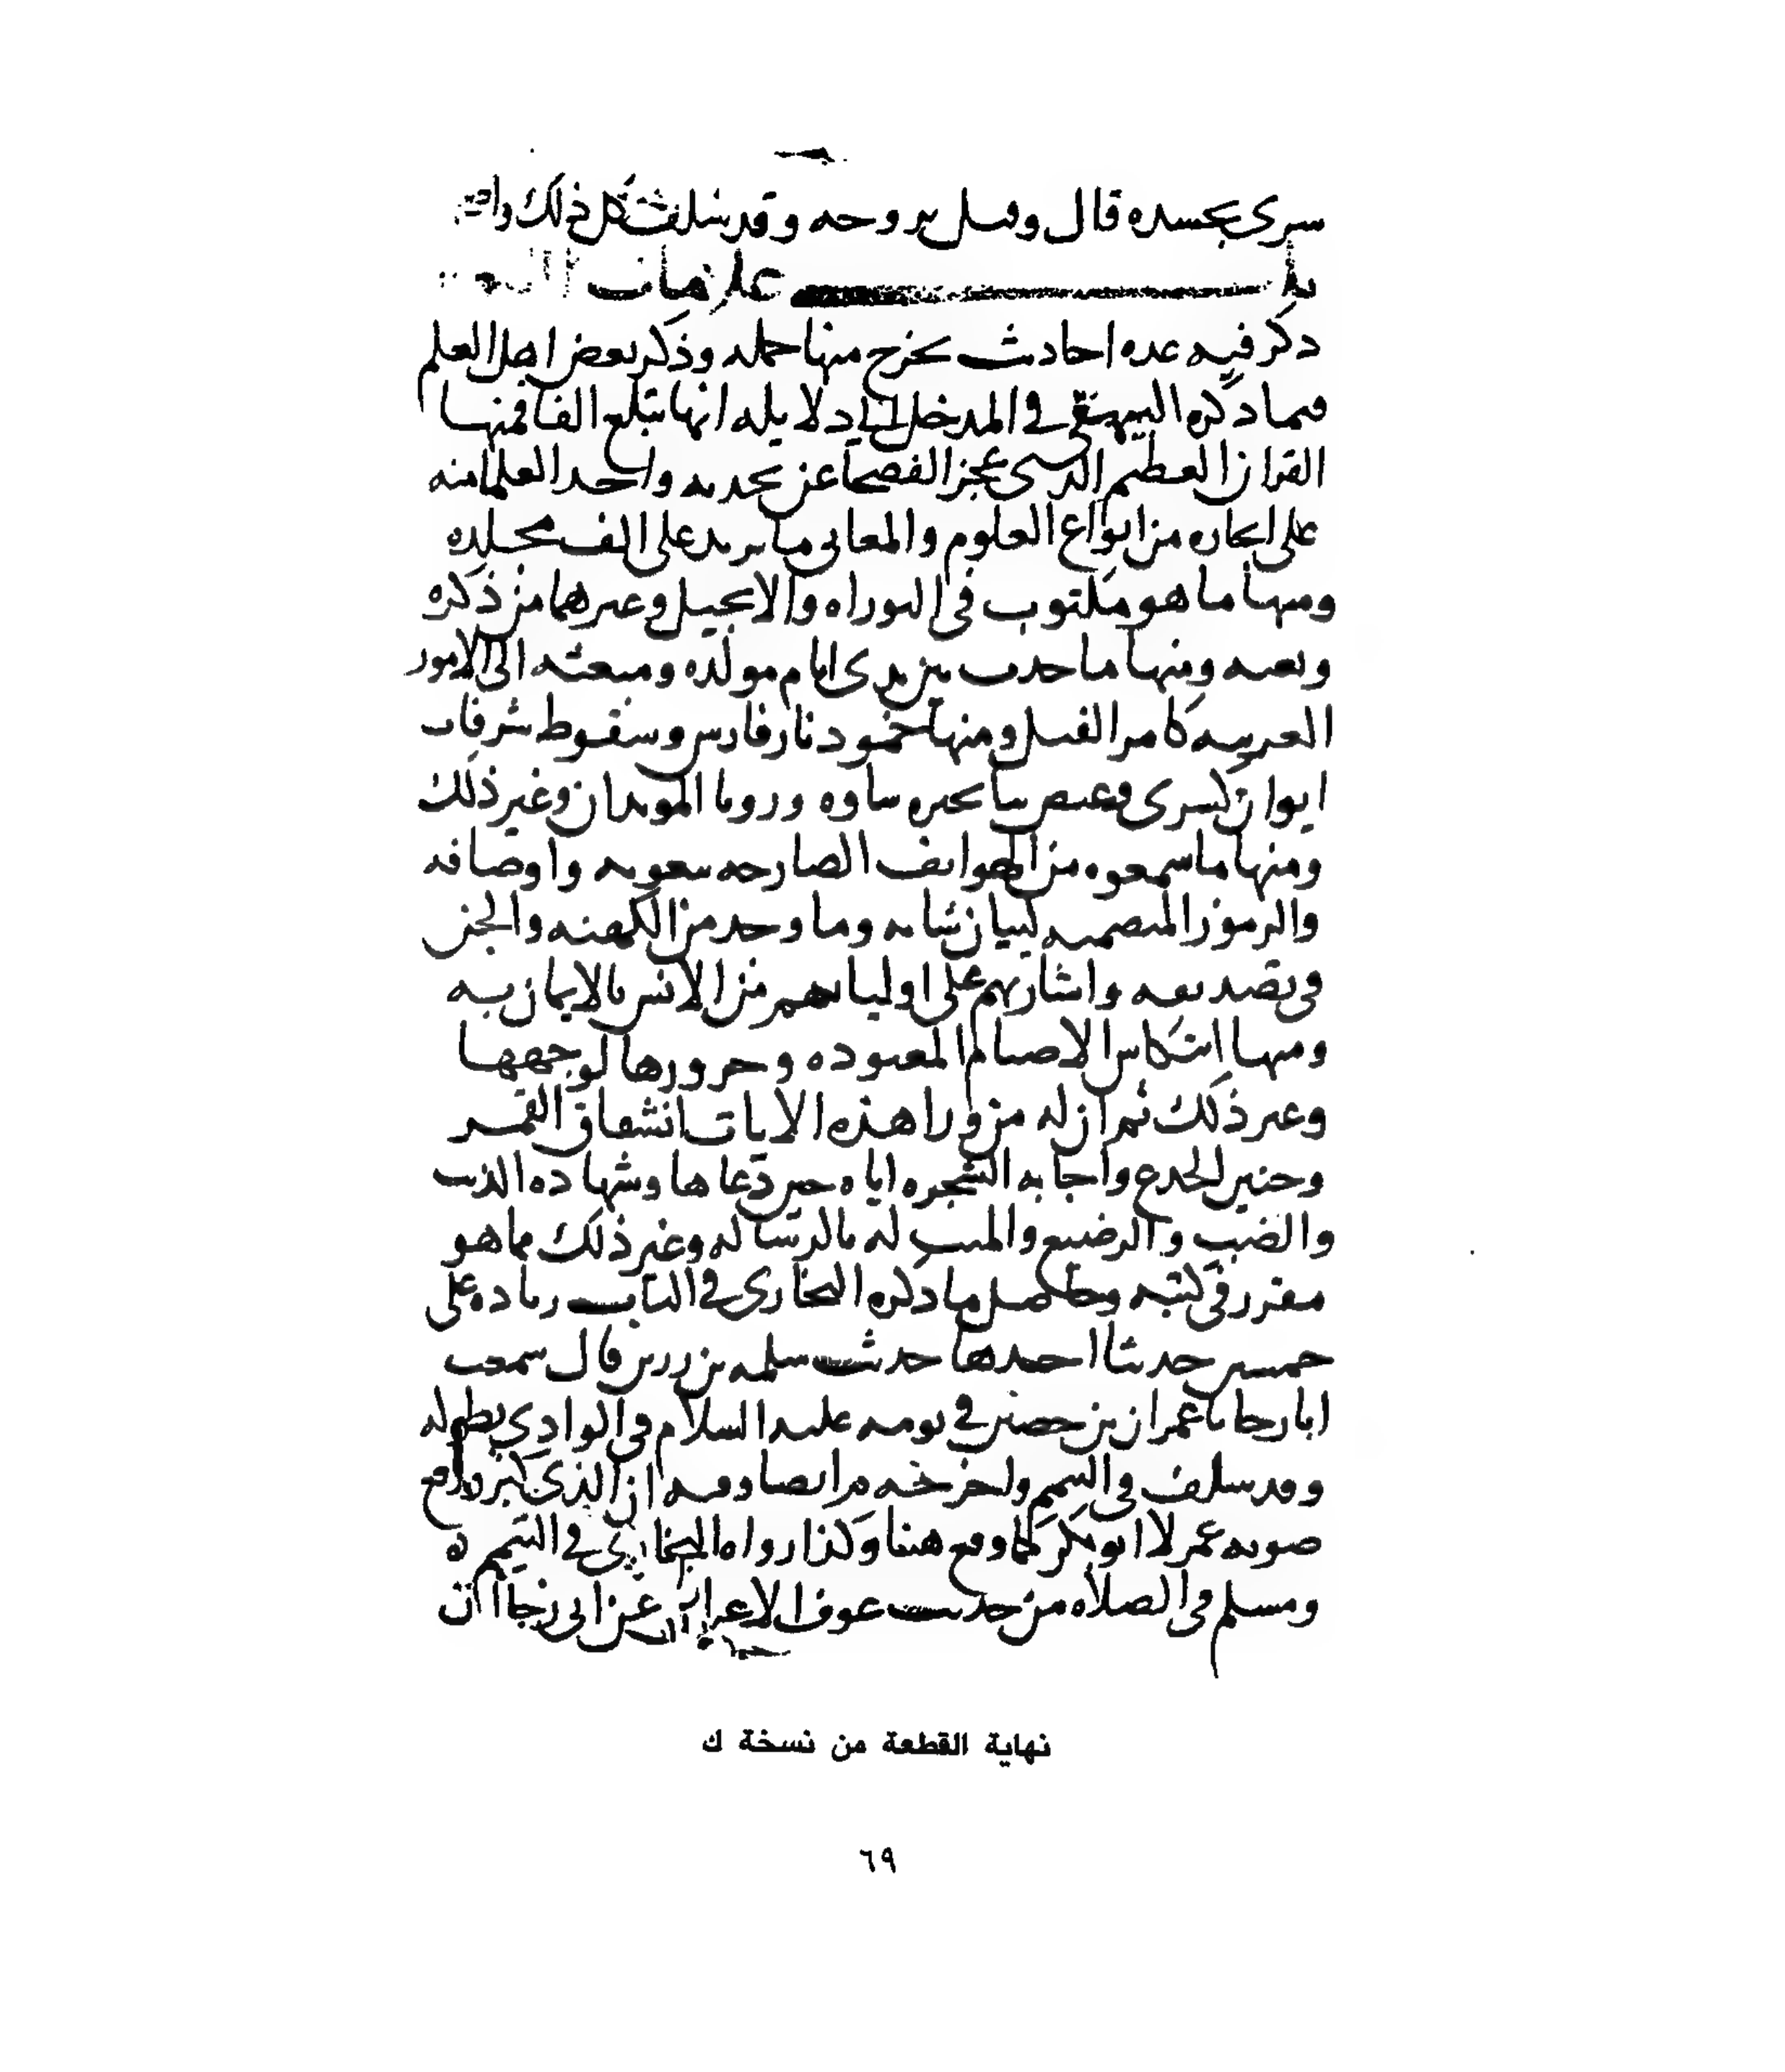 سرى بجسده قال وقيل بروحه وقد سلف كل ذلك
باب علامات
ذكر فيه عدة احاديث يخرج منها جملة وذكر بعض اهل العلم
فيما ذكره البيهقي في المدخل الى دلايله انها تبلغ الفا فمنها
القران العظيم الذي عجز الفصحا عن تحديه واحد العلما منه
على ايجازه من انواع العلوم والمعاني ما يزيد على الف مجلده
ومنها ما هو مكتوب في التوراه والانجيل وغيرهما من ذكره
ونعته ومنها ما حدث بين يدي ايام مولده ومبعثه الى الامور
الغريبه كامر الفيل ومنها خمود نار فارس وسقوط شرفات
ايوان كسرى وغيض ما بحيره ساوه ورويا الموبذان وغير ذلك
ومنها ما سمعوه من الهواتف الصارخه بنعوته واوصافه
والرموز المتضمنه لبيان شانه وما وجد من الكهنه والجن
في تصديقه واشارتهم على اوليائهم من الانس بالايمان به
ومنها انتكاس الاصنام المعبوده وخرورها لوجهها
وغير ذلك ثم ان له من ورا هذه الايات انشقاق القمر
وحنين الجذع واجابه الشجره اياه حين دعاها وشهاده الذيب
والضب والرضيع والميت له بالرساله وغير ذلك مما هو
مقرر في كتبه وحاصل ما ذكره البخاري في الباب زياده على
خمسين حديثا احدها حديث سلمه بن زرير قال سمعت
ابا رجا نا عمران بن حصين في نومه عليه السلام في الوادي بطوله
وقد سلف في التيمم واخرجه م ايضا وفيه ان الذي كبر ورفع
صوته عمر لا ابو بكر كما وقع هنا وكذا رواه البخاري في التيمم ه
ومسلم في الصلاه من حديث عوف الاعرابي عن ابي رجا ان
نهاية القطعة من نسخة ك
٦٩